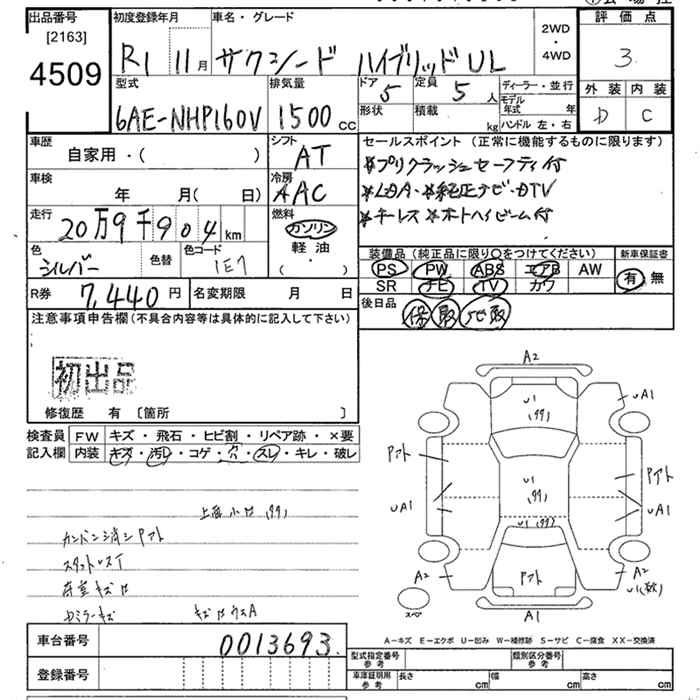 出品番号
[2163]
4509
初度登録年月
R1 11月
車名・グレード
サクシード ハイブリッド UL
2WD
・
4WD
評価点
3
外装 内装
D C
型式
6AE-NHP160V
排気量
1500 cc
ドア
5
定員
5人
形状
積載
kg
ディーラー・並行
モデル年式 年
ハンドル 左・右
車歴
自家用・( )
シフト
AT
車検
年 月( 日)
冷房
AAC
走行
20万9千904 km
燃料
ガソリン
軽油
・
( )
色
シルバー
色替
色コード
1E7
R券 7,440円
名変期限 月 日
セールスポイント(正常に機能するものに限ります)
*プリクラッシュセーフティ付
*LDA・*純正ナビ・DTV
*キーレス*オートハイビーム付
装備品(純正品に限り○をつけてください)
PS PW ABS エアB AW
SR ナビ TV カワ
新車保証書
有 無
後日品
保 取 地取
注意事項申告欄(不具合内容等は具体的に記入して下さい)
初出品
修復歴 有 [箇所 ]
検査員記入欄
FW キズ・飛石・ヒビ割・リペア跡・×要
内装 キズ・汚レ・コゲ・穴・スレ・キレ・破レ
カンバン済シPアト
スタットレスT
荷室キズ凹
ドミラーキズ
A2
U1
UA1
Pアト
Pアト
U1
UA1
UA1
U1
A2
Pアト
A2
スペア
A1
車台番号 0013693
登録番号
A-キズ E-エクボ U-凹み W-補修跡 S-サビ C-腐食 XX-交換済
型式指定番号 参考
類別区分番号 参考
車庫証明用 参考
長さ cm
幅 cm
高さ cm